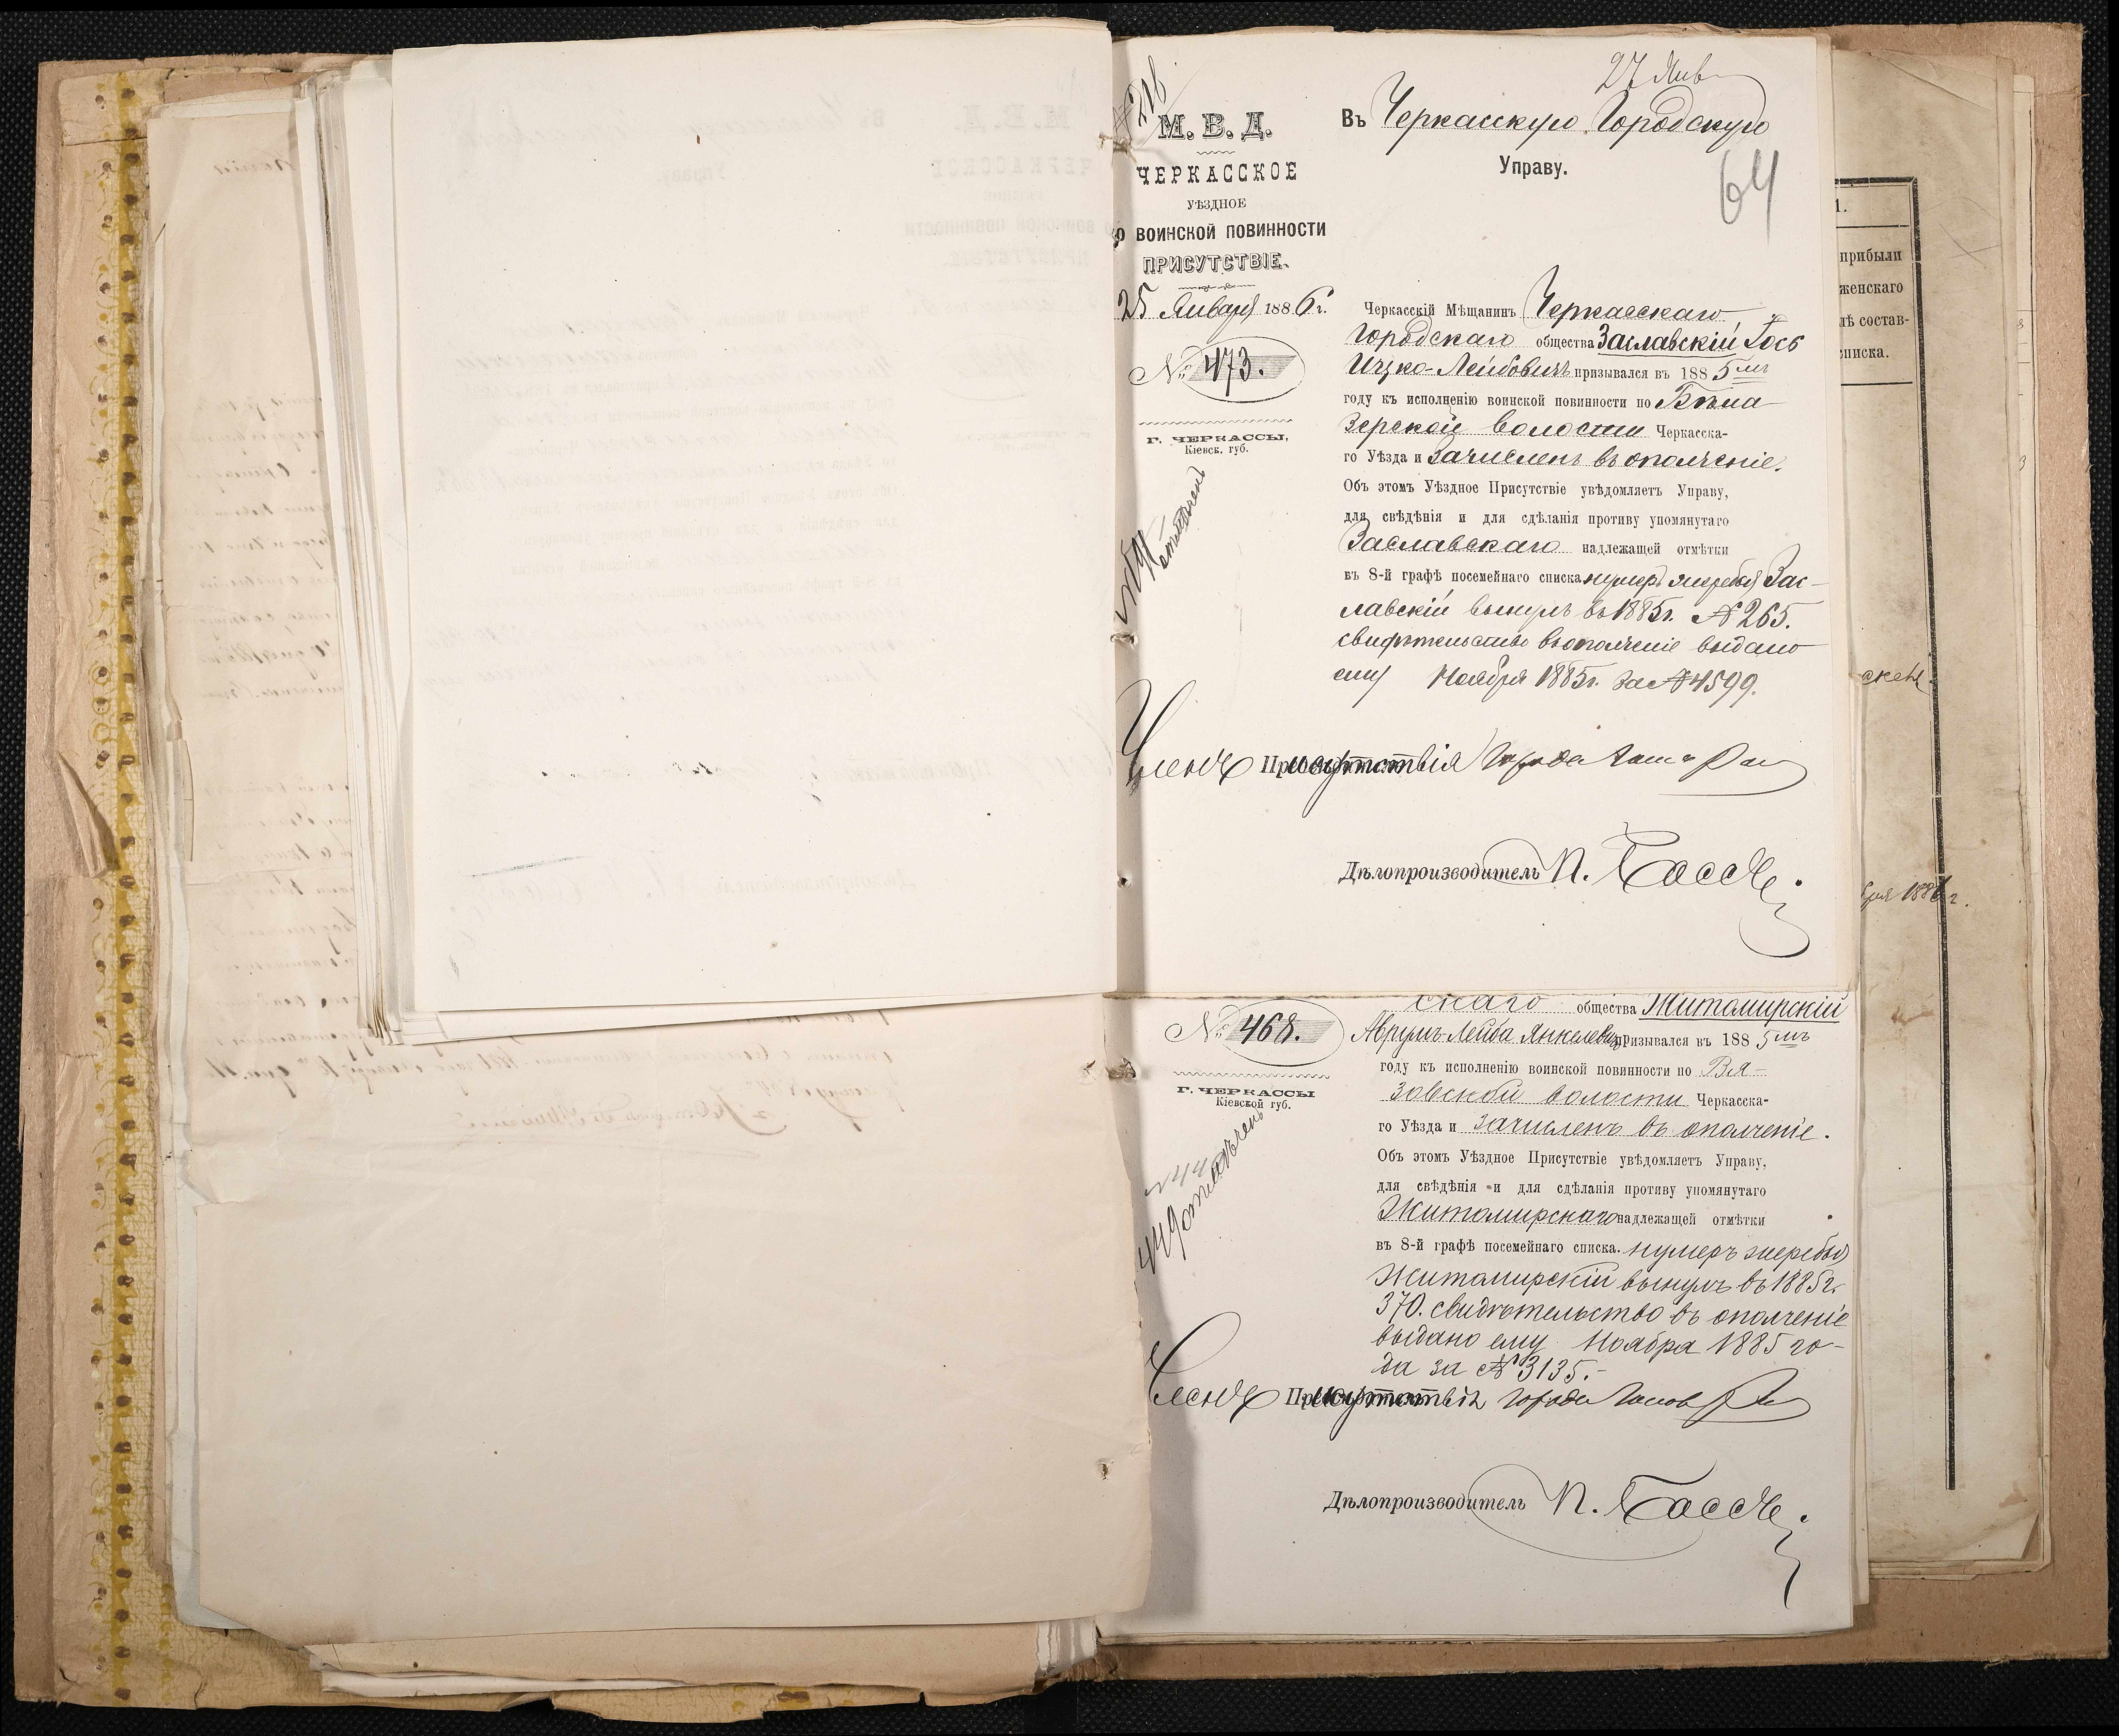 27 Янв
№ 216
М. В. Д.
ЧЕРКАССКОЕ
УѢЗДНОЕ
ПО ВОИНСКОЙ ПОВИННОСТИ
ПРИСУТСТВІЕ.
25 Января 1886 г.
№ 473.
Г. ЧЕРКАССЫ,
Кіевск. губ.
отмѣченъ
Въ Черкасскую Городскую
Управу.
64
Черкасскій Мѣщанинъ Черкасскаго
городскаго общества Заславскій Іось
Ицко-Лейбовичъ призывался въ 1885мъ
году къ исполненію воинской повинности по Бѣла
зерской волости Черкасска-
го Уѣзда и зачисленъ въ ополченіе.
Объ этомъ Уѣздное Присутствіе увѣдомляетъ Управу,
для свѣдѣнія и для сдѣланія противу упомянутаго
Заславскаго надлежащей отмѣтки
въ 8-й графѣ посемейнаго списка нумеръ жеребья Зас-
лавскій вынулъ въ 1885г. № 265.
свидѣтельство въ ополченіе выдано
ему Ноября 1885г. за № 4599.
Членъ Присутствія Города
Дѣлопроизводитель П.
скаго общества Житомирскій
№ 468.
Аврумъ-Лейба Янкелевичъ призывался въ 1885мъ
году къ исполненію воинской повинности по Вя-
зовской волости Черкасска-
го Уѣзда и зачисленъ въ ополченіе.
Объ этомъ Уѣздное Присутствіе увѣдомляетъ Управу,
для свѣдѣнія и для сдѣланія противу упомянутаго
Житомирскаго надлежащей отмѣтки
въ 8-й графѣ посемейнаго списка. нумеръ жеребья
Житомирскій вынулъ въ 1885г.
370. свидѣтельство въ ополченіе
выдано ему Ноября 1885 го-
да за № 3135.-
Г. ЧЕРКАССЫ
Кіевской губ.
449 отмѣченъ
Членъ Присутствія Города
Дѣлопроизводитель П.
1.
прибыли
женскаго
лѣ состав-
списка.
бря 1886 г.